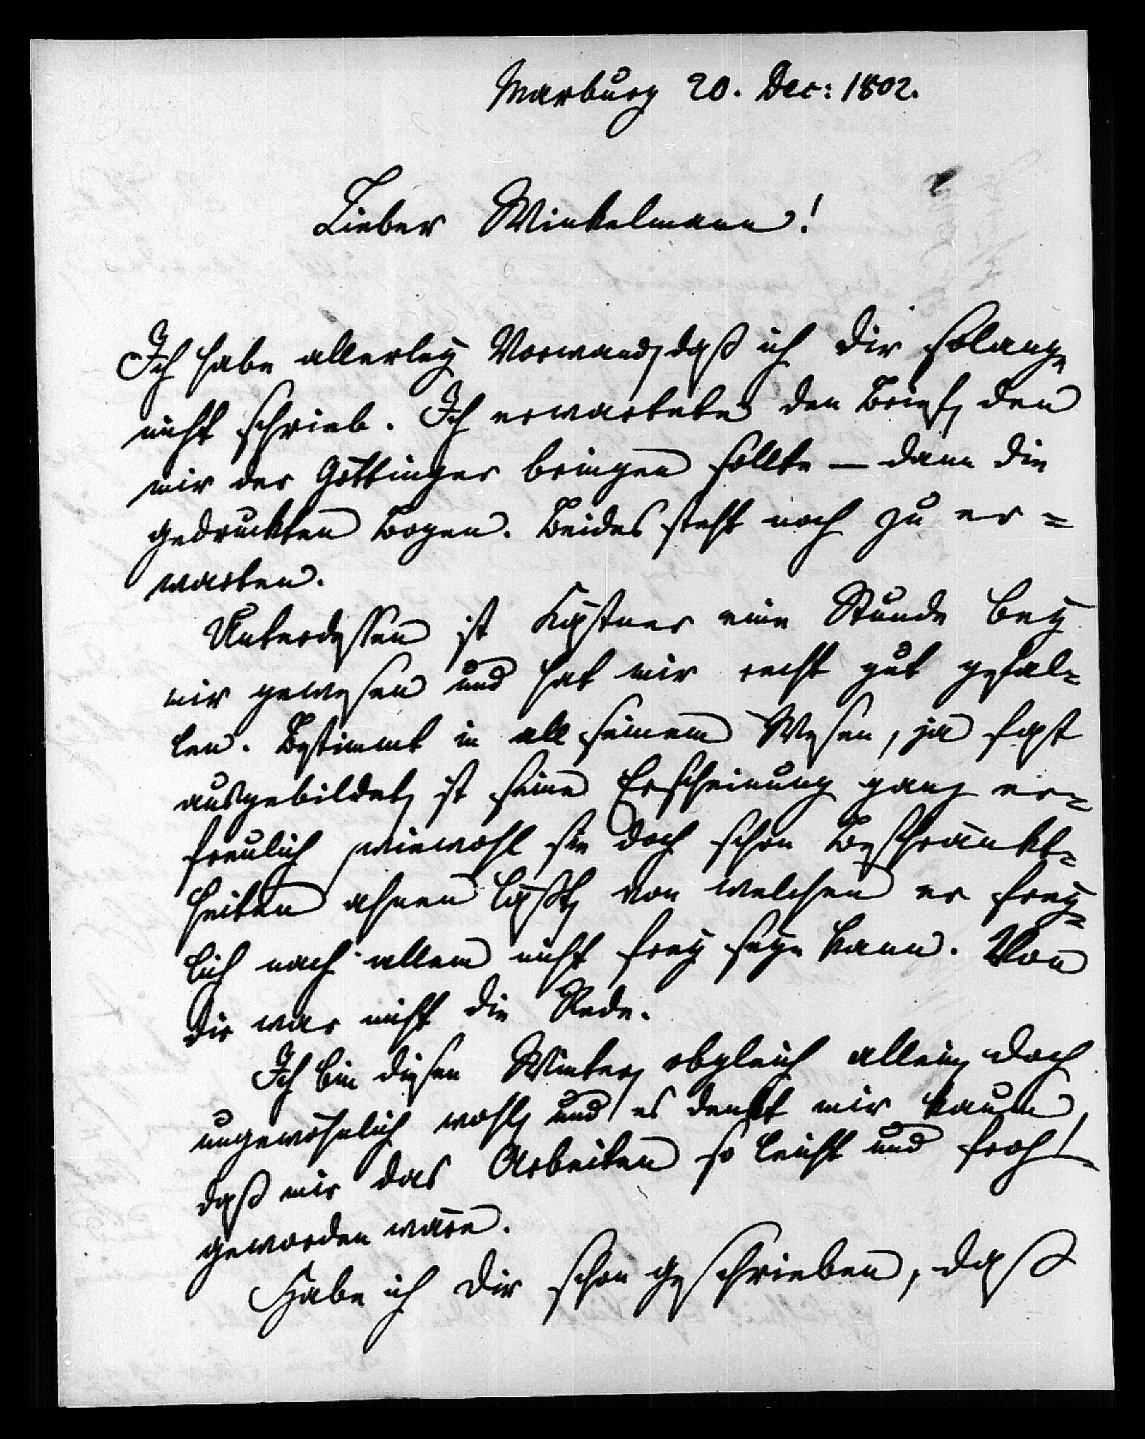 Marburg 20. Dec: 1802.
Lieber Winkelmann!
Ich habe allerley Vorwand, daß ich Dir solange
nicht schrieb. Ich erwartete den Brief, den
mir der Göttinger bringen sollte — dann die
gedruckten Bogen. Beides steht noch zu er=
warten.
Unterdessen ist Kästner eine Stunde bey
mir gewesen und hat mir recht gut gefal=
len. Bestimmt in all seinem Wesen, ja fast
ausgebildet, ist seine Erscheinung ganz er=
freulich, wiewohl sie doch schon Beschränkt=
heiten ahnen läßt, von welchen er frey=
lich nach allem nicht frey seyn kann. Von
Dir war nicht die Rede.
Ich bin diesen Winter, obgleich allein, doch
ungewöhnlich wohl, und es denkt mir kaum,
daß mir das Arbeiten so leicht und froh
geworden wäre.
Habe ich Dir schon geschrieben, daß